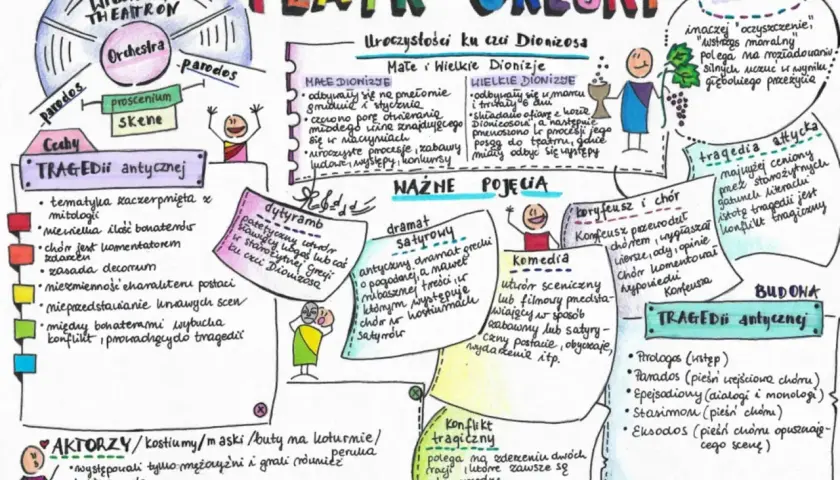 TEATR GRECKI
THEATRON
Orchestra
parodos
parodos
proscenium
SKENE
Uroczystości ku czci Dionizosa
Małe i Wielkie Dionizje
MAŁE DIONIZJE
• odbywały się na przełomie
grudnia i stycznia
• czczono porę otwierania
młodego wina znajdującego
się w naczyniach
• uroczyste procesje, zabawy
ludowe, występy, konkursy
WIELKIE DIONIZJE
• odbywały się w marcu
i trwały 6 dni
• składano ofiarę z kozła
Dionizosowi, a następnie
przenoszono w procesji jego
posąg do teatru, gdzie
miały odbyć się występy
inaczej "oczyszczenie",
"wstrząs moralny"
polega na rozładowaniu
silnych uczuć w wyniku
głębokiego przeżycia
Cechy
TRAGEDII antycznej
• tematyka zaczerpnięta z
mitologii
• niewielka ilość bohaterów
• chór jest komentatorem
zdarzeń
• zasada decorum
• niezmienność charakteru postaci
• nieprzedstawianie krwawych scen
• między bohaterami wybucha
konflikt, prowadzący do tragedii
WAŻNE POJĘCIA
dytyramb
patetyczny utwór
sławiący kogoś lub coś
w starożytnej Grecji
ku czci Dionizosa
dramat
satyrowy
antyczny dramat grecki
o pogodnej, a nawet
rubasznej treści, w
którym występuje
chór w kostiumach
satyrów
komedia
utwór sceniczny
lub filmowy przedsta-
wiający w sposób
zabawny lub satyry-
czny postacie, obyczaje,
wydarzenie itp.
koryfeusz i chór
Koryfeusz przewodził
chórem, wygłaszał
wiersze, ody, opinie.
Chór komentował
wypowiedzi
Koryfeusza
tragedia attycka
najwyżej ceniony
przez starożytnych
gatunek literacki
istotą tragedii jest
konflikt tragiczny
BUDOWA
TRAGEDII antycznej
• Prologos (wstęp)
• Parados (pieśń wejściowa chóru)
• Epejsodiony (dialogi i monologi)
• Stasimon (pieśń chóru)
• Eksodos (pieśń chóru opuszczają-
cego scenę)
konflikt
tragiczny
polega na zderzeniu dwóch
racji, które zawsze są
AKTORZY / kostiumy / maski / buty na koturnie /
peruka
• występowali tylko mężczyźni i grali również